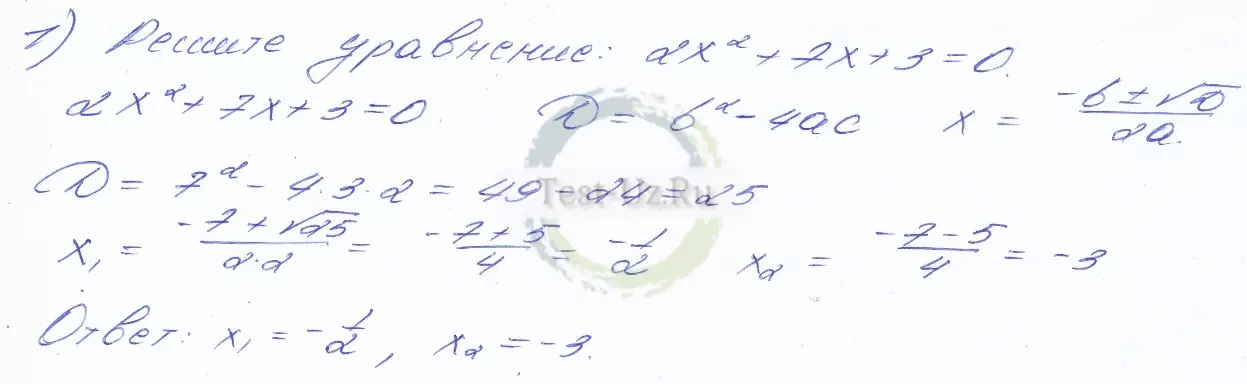 1) Решите уравнение: 2x² + 7x + 3 = 0.
2x² + 7x + 3 = 0. D = b² - 4ac x = (-b ± √D)/2a.
D = 7² - 4·3·2 = 49 - 24 = 25
Test-Uz.Ru
x₁ = (-7 + √25)/(2·2) = (-7+5)/4 = -1/2 x₂ = (-7-5)/4 = -3
Ответ: x₁ = -1/2, x₂ = -3.